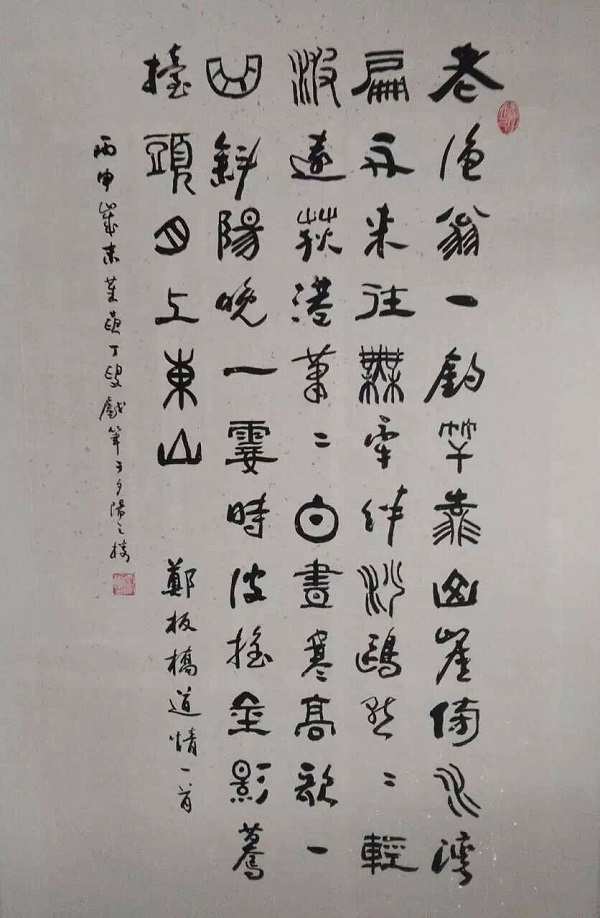 老漁翁一釣竿靠山崖傍水灣
扁舟來往無牽絆沙鷗點〻輕
波遠荻港蕭〻白晝寒高歌一
曲斜陽晚一霎時波搖金影驀
擡頭月上東山 鄭板橋道情一首
丙申歲末 丁叟戲筆于夕陽之樓